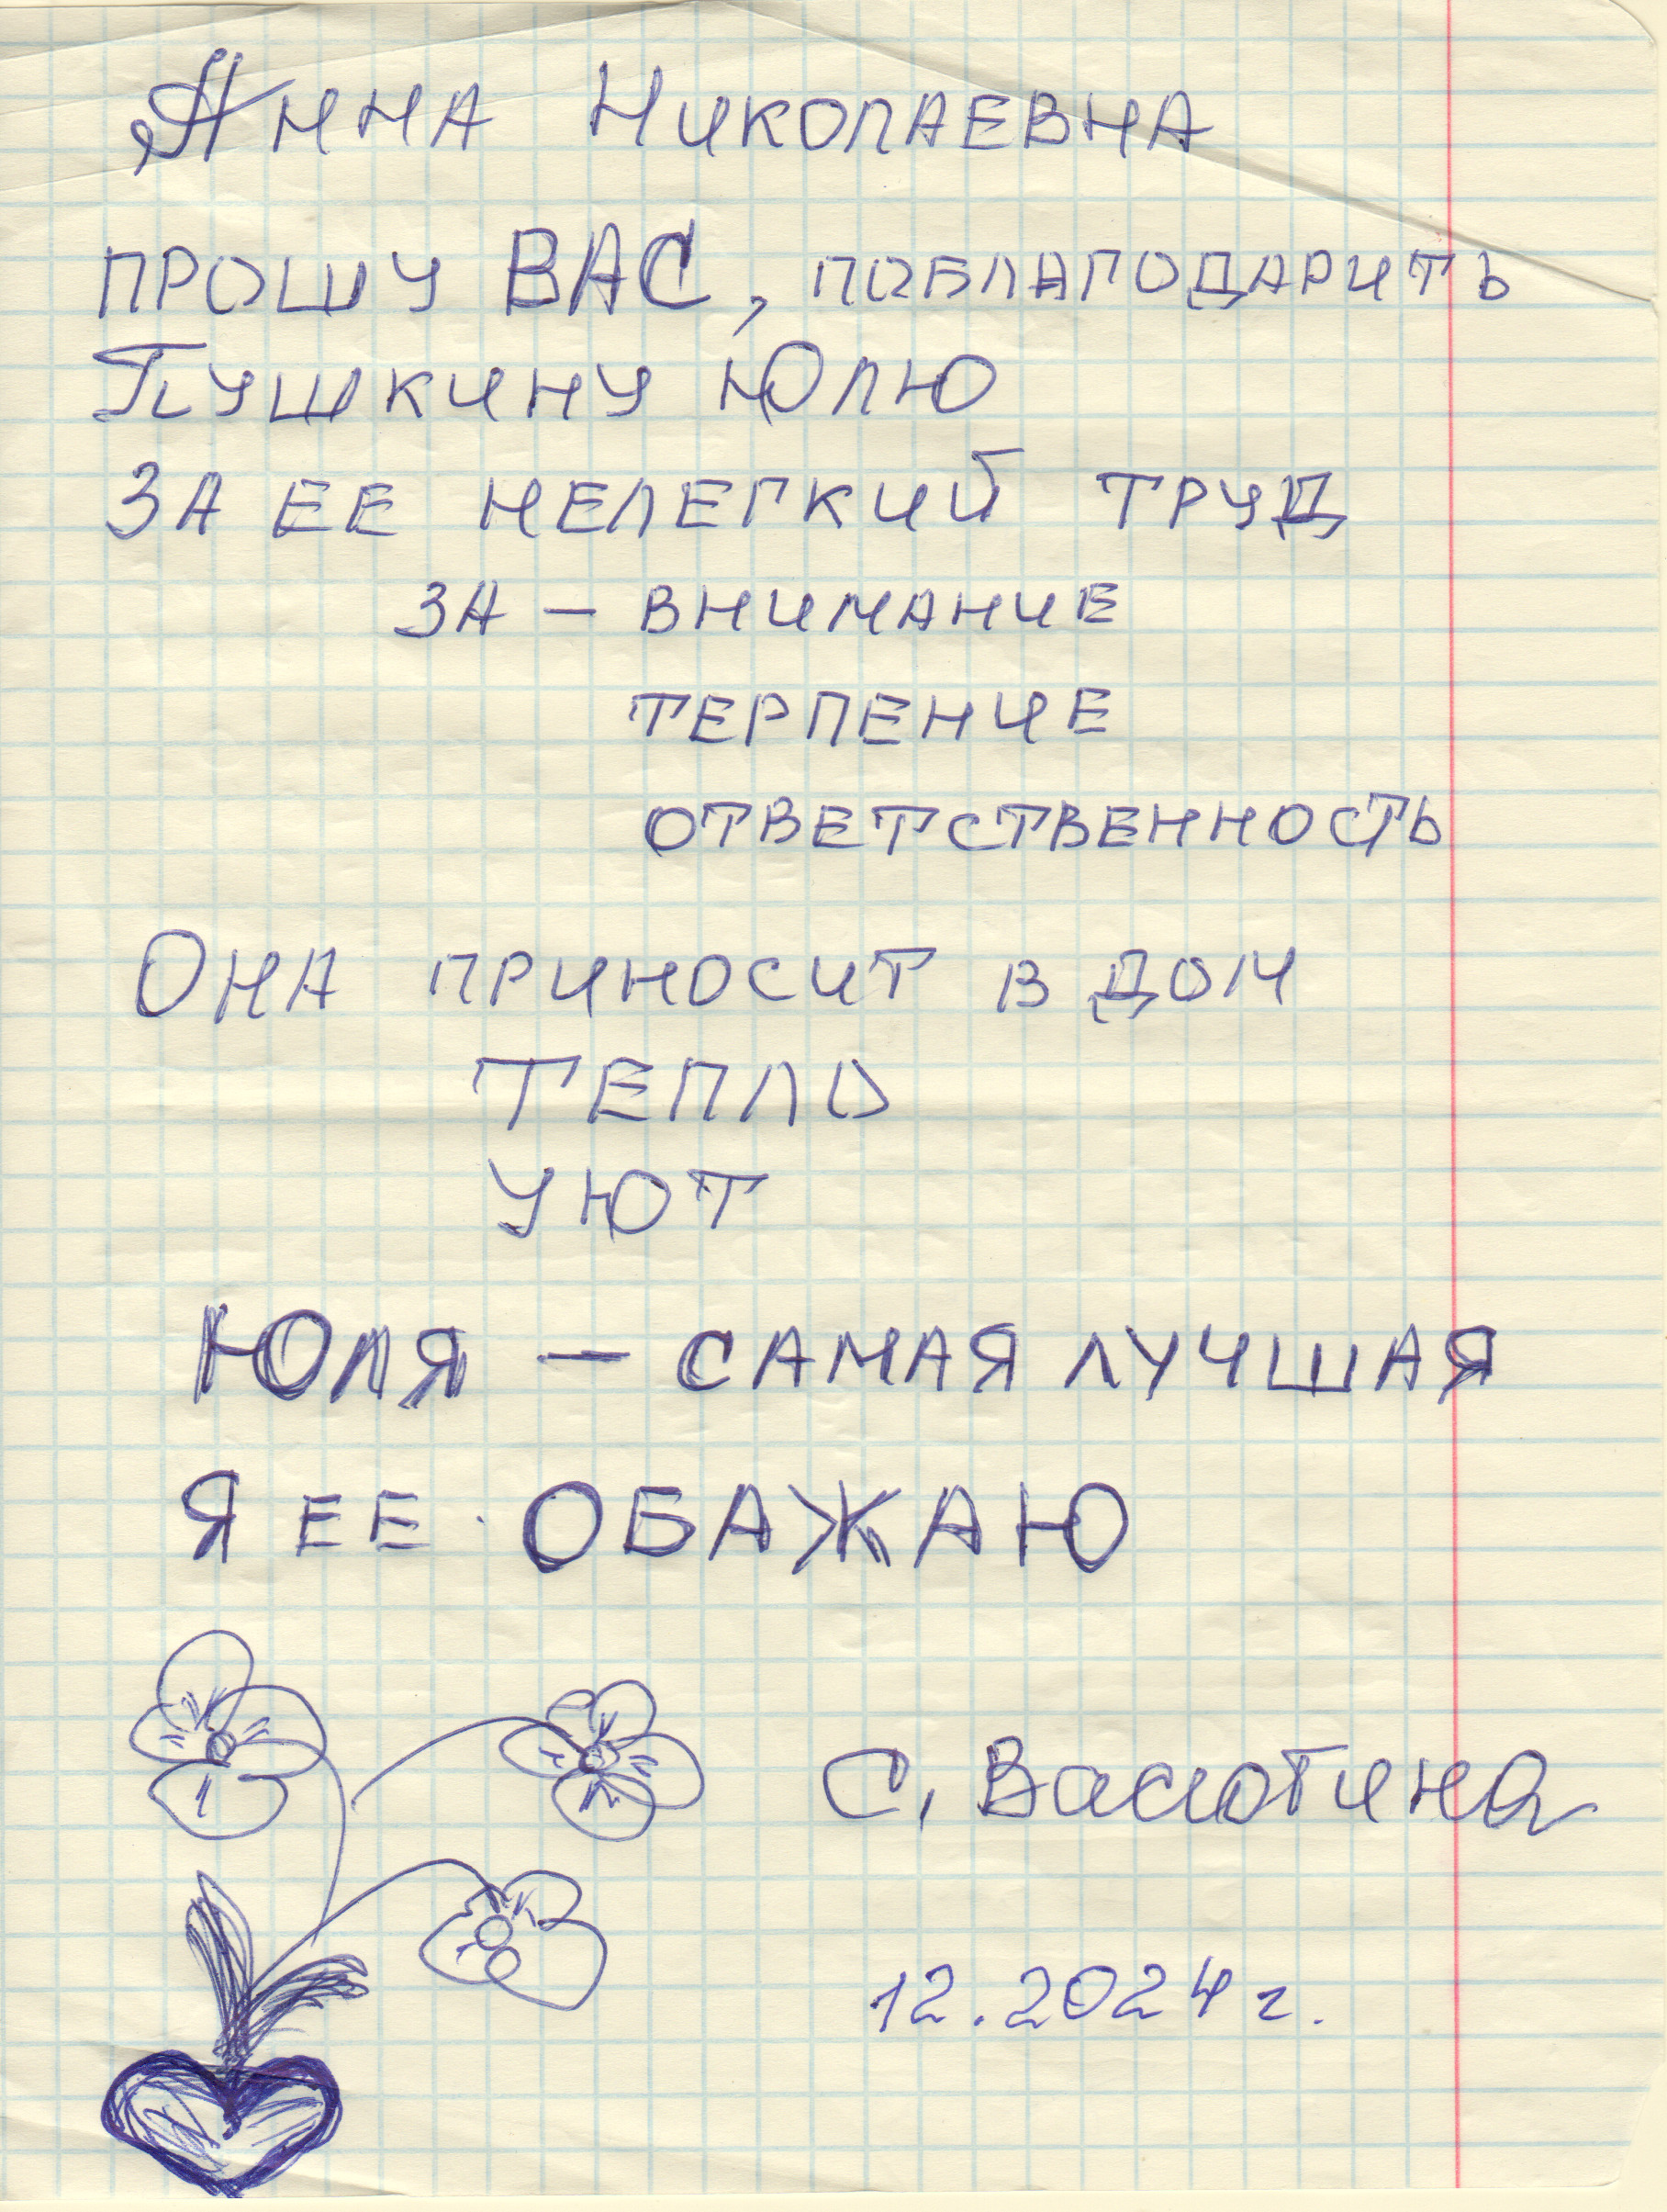 Анна Николаевна
прошу ВАС, поблагодарить
Пушкину Юлю
за ее нелегкий труд
за – внимание
терпение
ответственность
Она приносит в дом
тепло
уют
Юля – самая лучшая
Я ее обажаю
С. Васютина
12.2024 г.